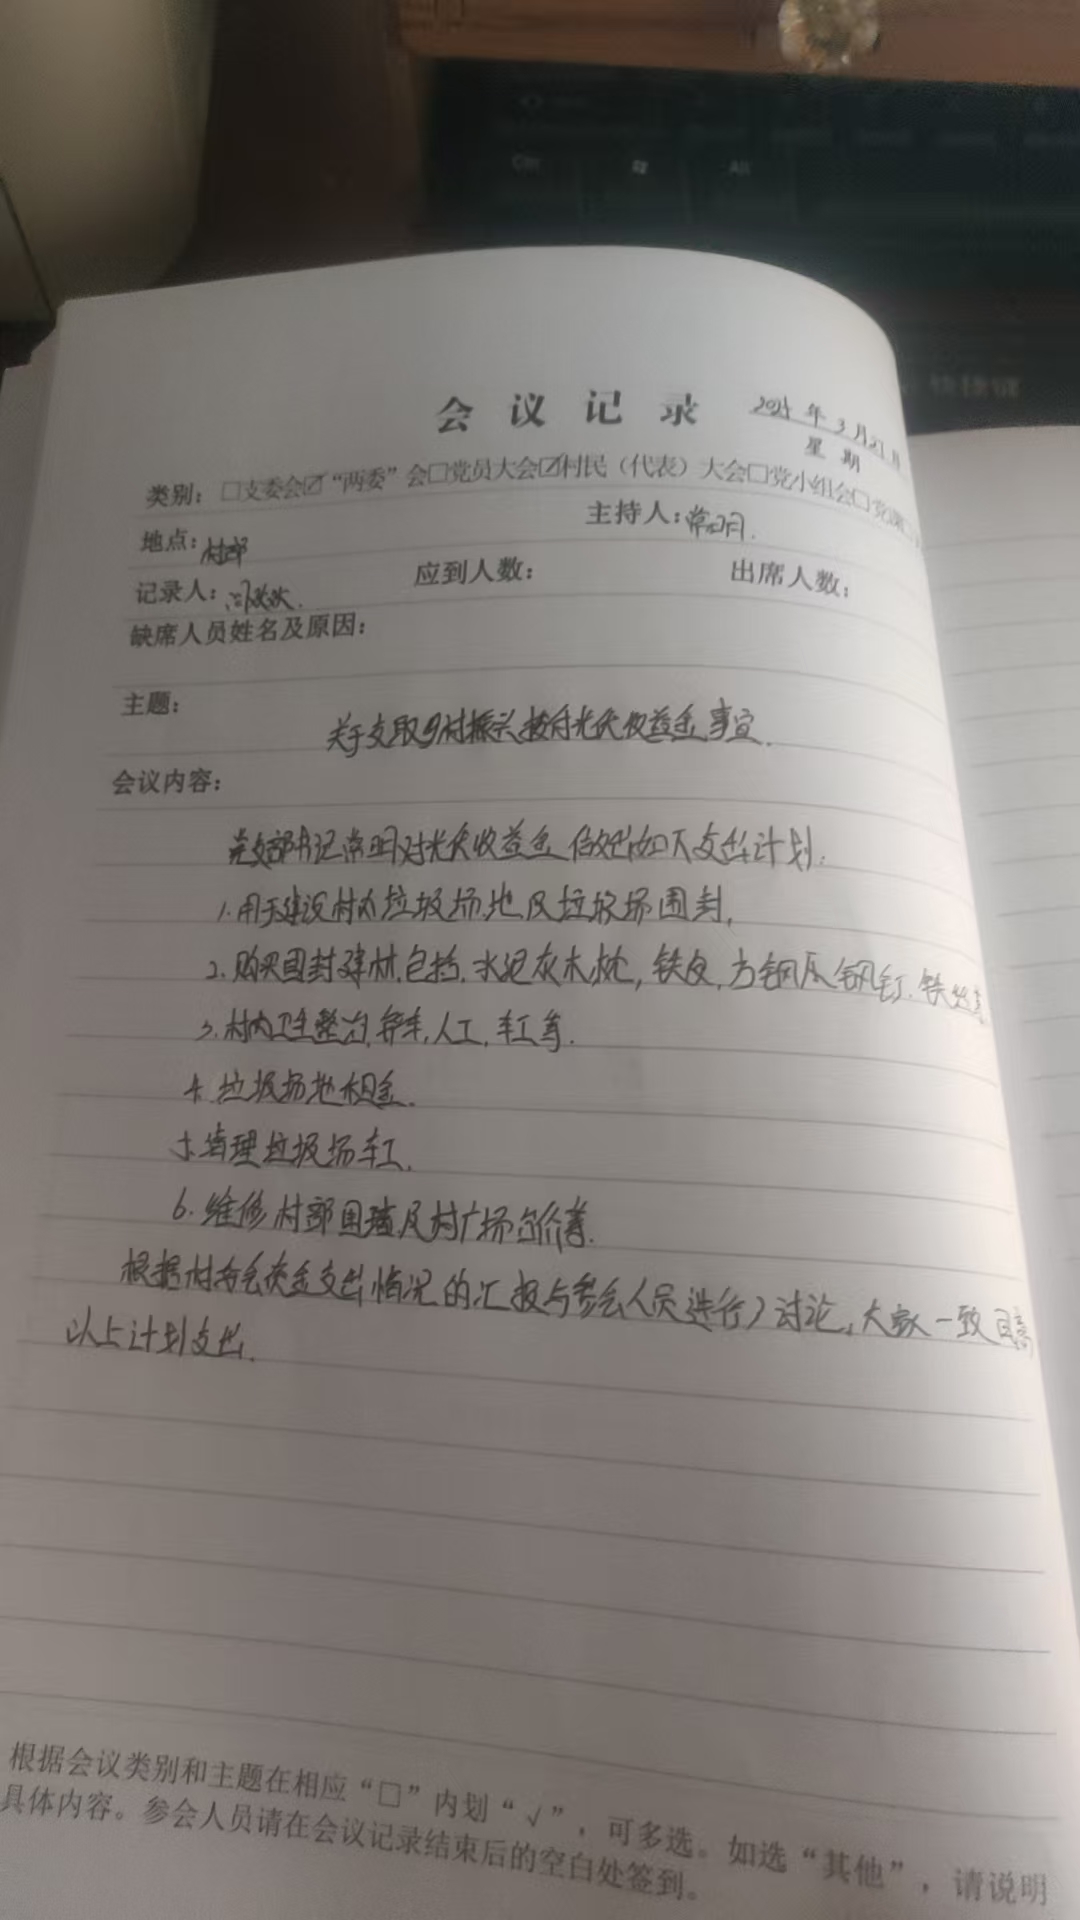 会议记录
年3月27日
星期
类别：□支委会☑“两委”会□党员大会☑村民（代表）大会□党小组会□党课□
地点：村部 主持人：常明.
记录人： 应到人数： 出席人数：
缺席人员姓名及原因：
主题：
关于支取乡村振兴 光伏收益金事宜.
会议内容：
党支部书记常明对光伏收益金做出如下支出计划：
1.用于建设村内垃圾场地及垃圾场围封.
2.购买围封建材,包括,水泥灰木桩,铁皮,方钢 钢钉.铁丝等
3.村内卫生整治,铲车,人工,车工等.
4.垃圾场地租金.
5.清理垃圾场车工.
6.维修村部围墙及村广场 等.
根据村 资金支出情况的汇报与参会人员进行了讨论,大家一致同意
以上计划支出.
根据会议类别和主题在相应“□”内划“√”，可多选。如选“其他”，请说明
具体内容。参会人员请在会议记录结束后的空白处签到。